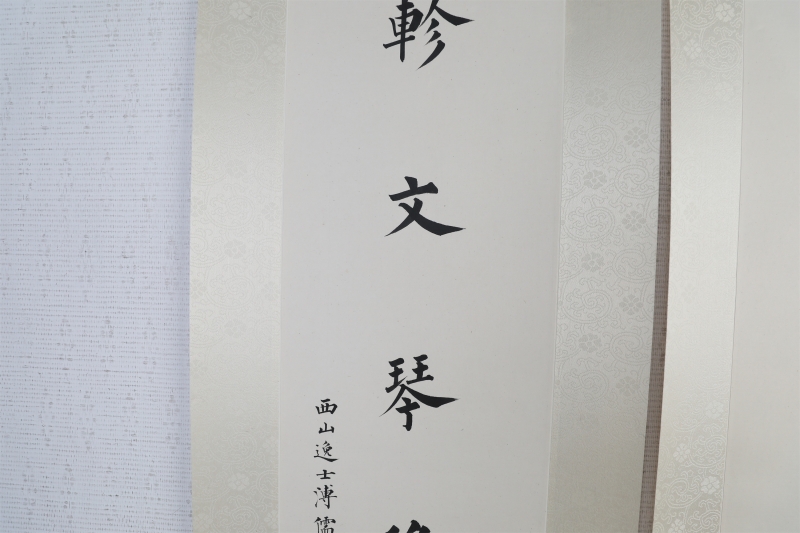 軫文琴
西山逸士溥儒